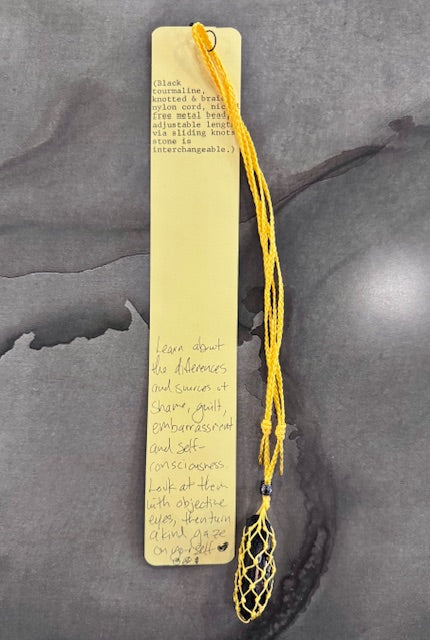 (Black
tourmaline,
knotted & braid
nylon cord, nic
free metal bead,
adjustable length
via sliding knots
stone is
interchangeable.)
Learn about
the differences
and sources of
shame, guilt,
embarrassment
and self-
consciousness.
Look at them
with objective
eyes, then turn
a kind gaze
on yourself